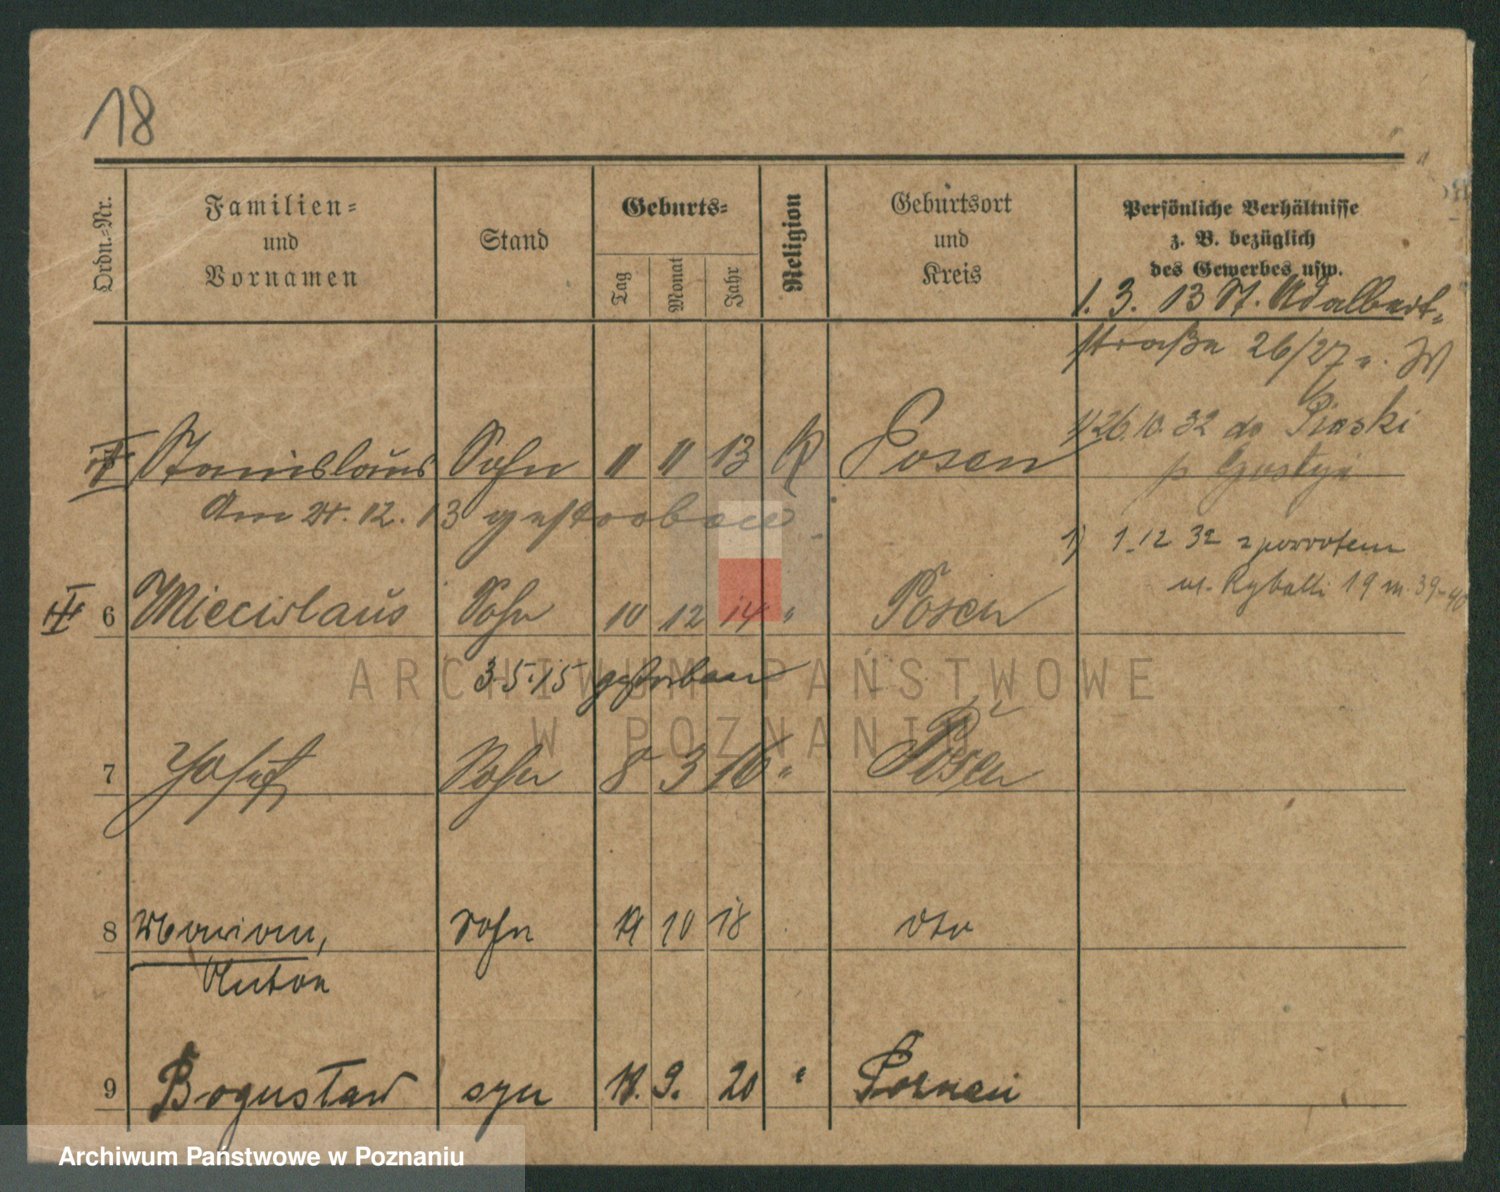 18
Ordn.-Nr. Familien- und Vornamen Stand Geburts- Tag Monat Jahr Religion Geburtsort und Kreis Persönliche Verhältnisse z. B. bezüglich des Gewerbes usw.
1. 3. 13 St. Adalbert-
straße 26/27
Stanislaus Sohn 11 11 13 K Posen 26.10.32 do Piaski
p Gostyń
Am 12. 13 gestorben
1) 1.12 32 z powrotem
6 Miecislaus Sohn 10 12 14 " Posen ul. Rybaki 19 m. 39-40
3.5.15 gestorben
7 Josef Sohn 8 3 16 " Posen
8 Marian, Sohn 19 10 18 dto
Anton
9 Bogusław syn 18. 9. 20 " Poznań
ARCHIWUM PAŃSTWOWE
W POZNANIU
Archiwum Państwowe w Poznaniu